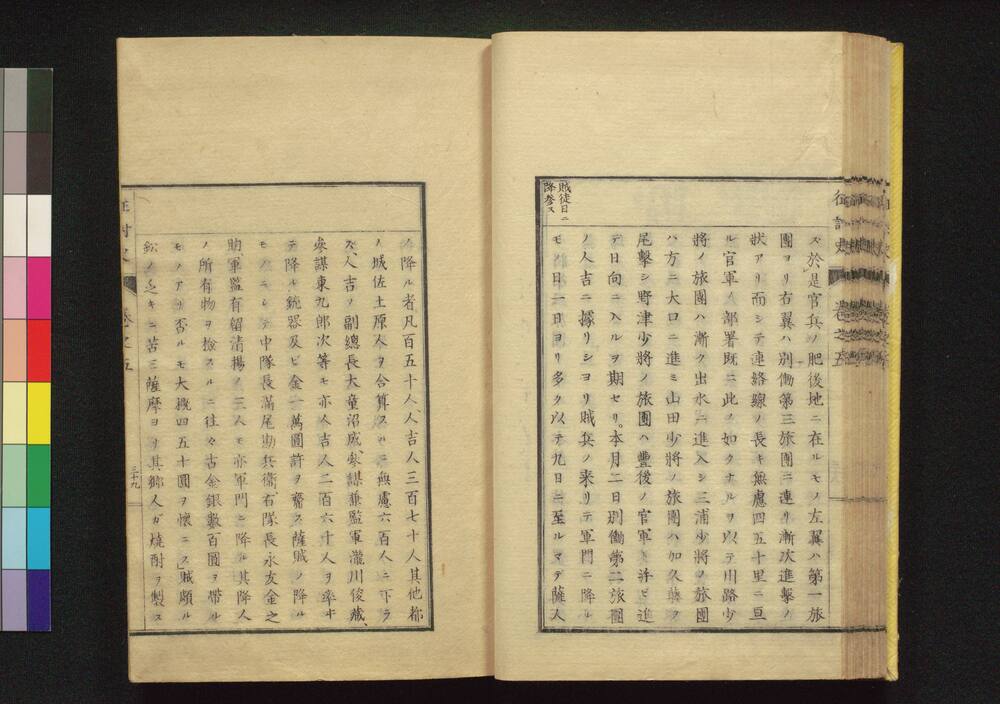 賊徒日ニ
降參ス
ス於是官兵ノ肥後地ニ在ルモノ左翼ハ第一旅
團ヨリ右翼ハ別働第三旅團ニ連リ漸次進擊ノ
狀アリ而シテ連絡線ノ長キ無慮四五十里ニ亘
ル官軍ノ部署既ニ此ノ如クナルヲ以テ川路少
將ノ旅團ハ漸ク出水ニ進入シ三浦少將ノ旅團
ハ方ニ大口ニ進ミ山田少將ノ旅團ハ加久藤ヲ
尾擊シ野津少將ノ旅團ハ豐後ノ官軍ト并ビ進
テ日向ニ入ルヲ期セリ。本月二日別働第二旅團
ノ人吉ニ據リシヨリ賊兵ノ來リテ軍門ニ降ル
モノ日一日ヨリ多ク以テ九日ニ至ルマデ薩人
征討史 卷之五
ノ降ル者凡百五十人、人吉人三百七十人其他都
ノ城佐土原人ヲ合算スルニ無慮六百人ニ下ラ
ズ、人吉ノ副總長大童沼成、參謀兼監軍瀧川俊藏、
參謀東九郎次等モ亦人吉人二百六十人ヲ率ヰ
テ降ル銃器及ビ金一萬圓許ヲ齎ス薩賊ノ降ル
モノニシテ中隊長滿尾勘兵衞右隊長永友金之
助、軍監有留清揚ノ三人モ亦軍門ニ降ル其降人
ノ所有物ヲ檢スルニ往々古金銀數百圓ヲ帶ル
モノアリ否ルモ大槪四五十圓ヲ懷ニス」賊頗ル
鉛ノ乏キニ苦ミ薩摩ヨリ其鄕人ガ燒酎ヲ製ス
征討史 卷之五 三十九